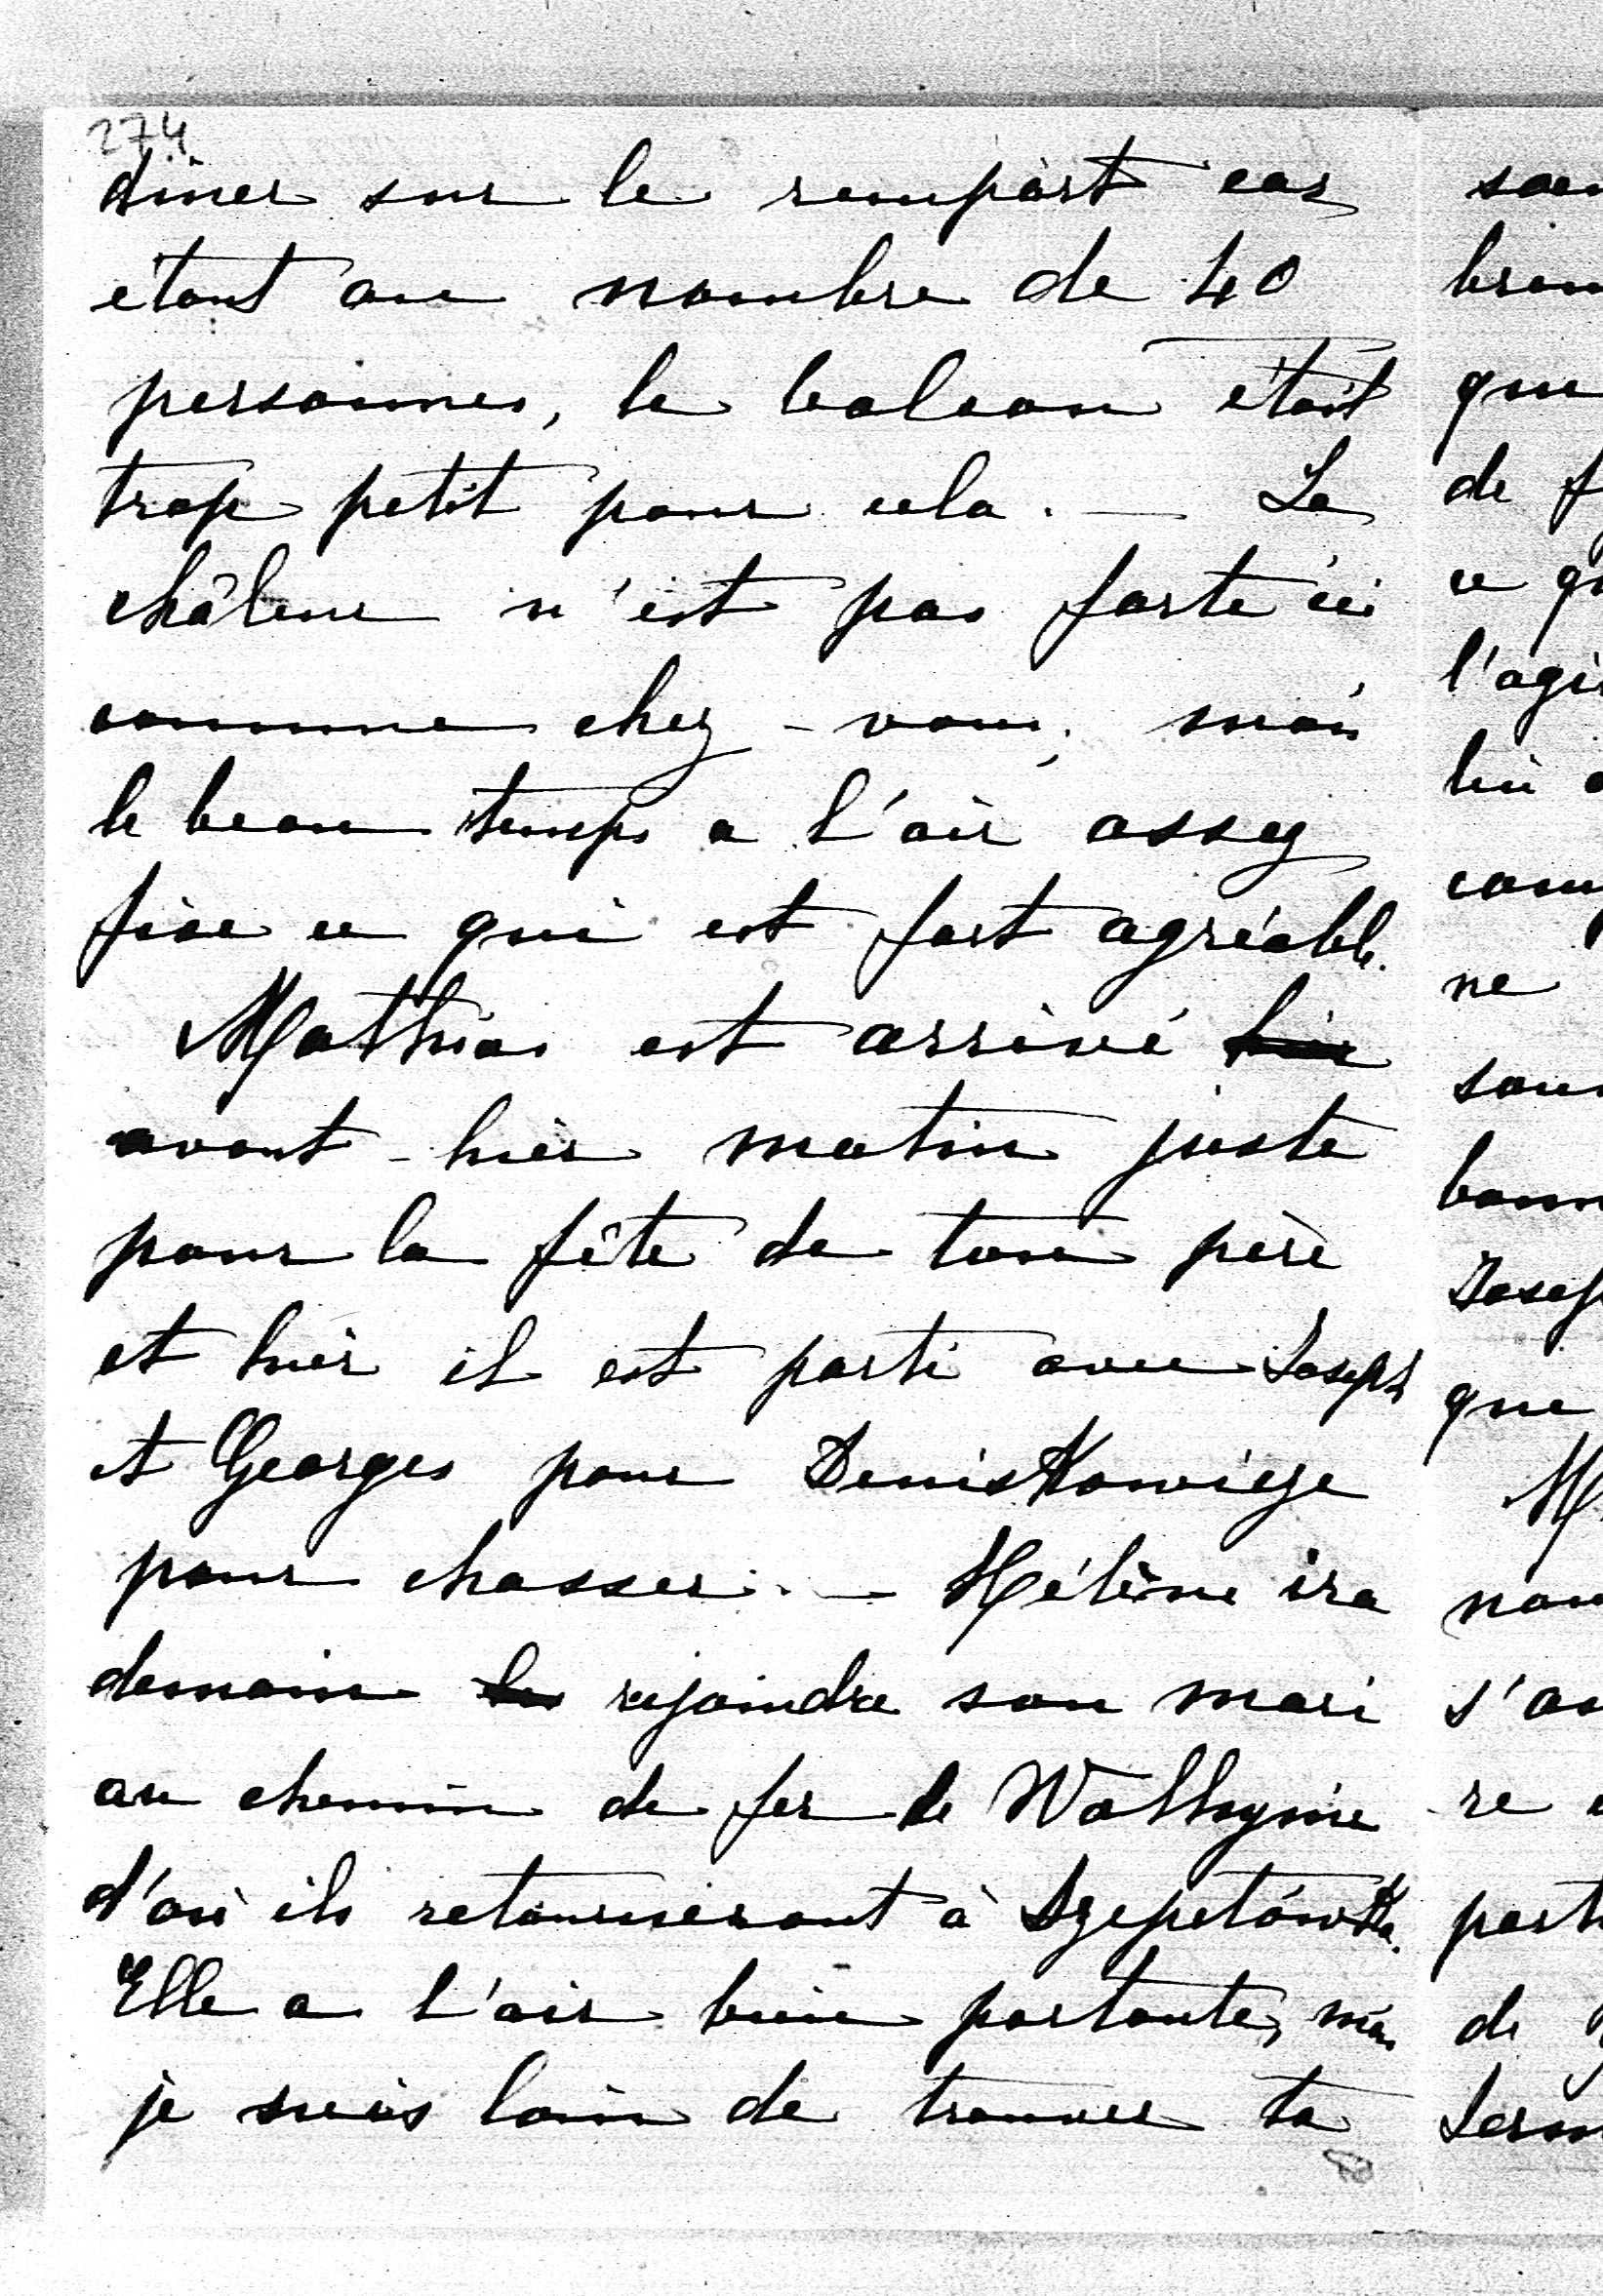 274
dîner sur le rempart car
étant au nombre de 40
personnes, le balcon était
trop petit pour cela. — La
châleur n'est pas forte ici
comme chez-vous; mais
le beau temps a l'air assez
fixe ce qui est fort agréable.
Mathias est arrivé hier
avant-hier matin juste
pour la fête de ton père
et hier il est parti avec Joseph
et Georges pour Deniskowicze
pour chasser. — Hélène ira
demain les rejoindre son mari
au chemin de fer de Wolhynie
d'où ils retourneront à Szepetówka.
Elle a l'air bien portante, mais
je suis loin de trouver ta
que
de f
ce qu
l'agi
lui
ne
que
M
s'as
re
de